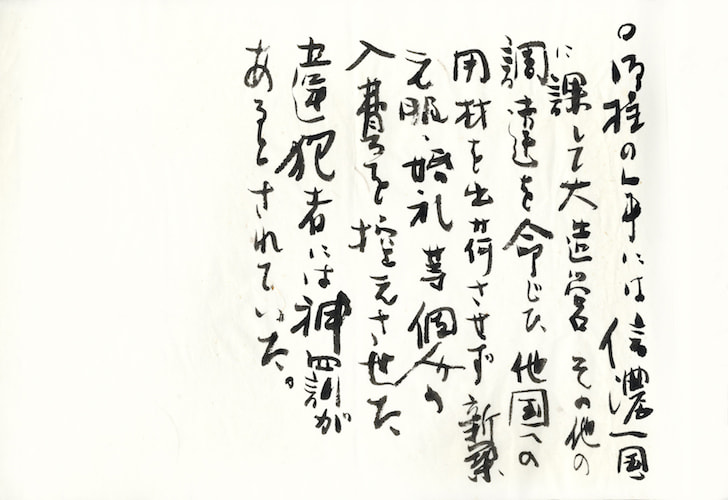 〇御柱の年には信濃一国
に課して大造営その他の
調達を命じた他国への
用材を出荷させず新築
元服、婚礼等個人の
入費を控えさせた
違犯者には神罰が
あるとされていた。